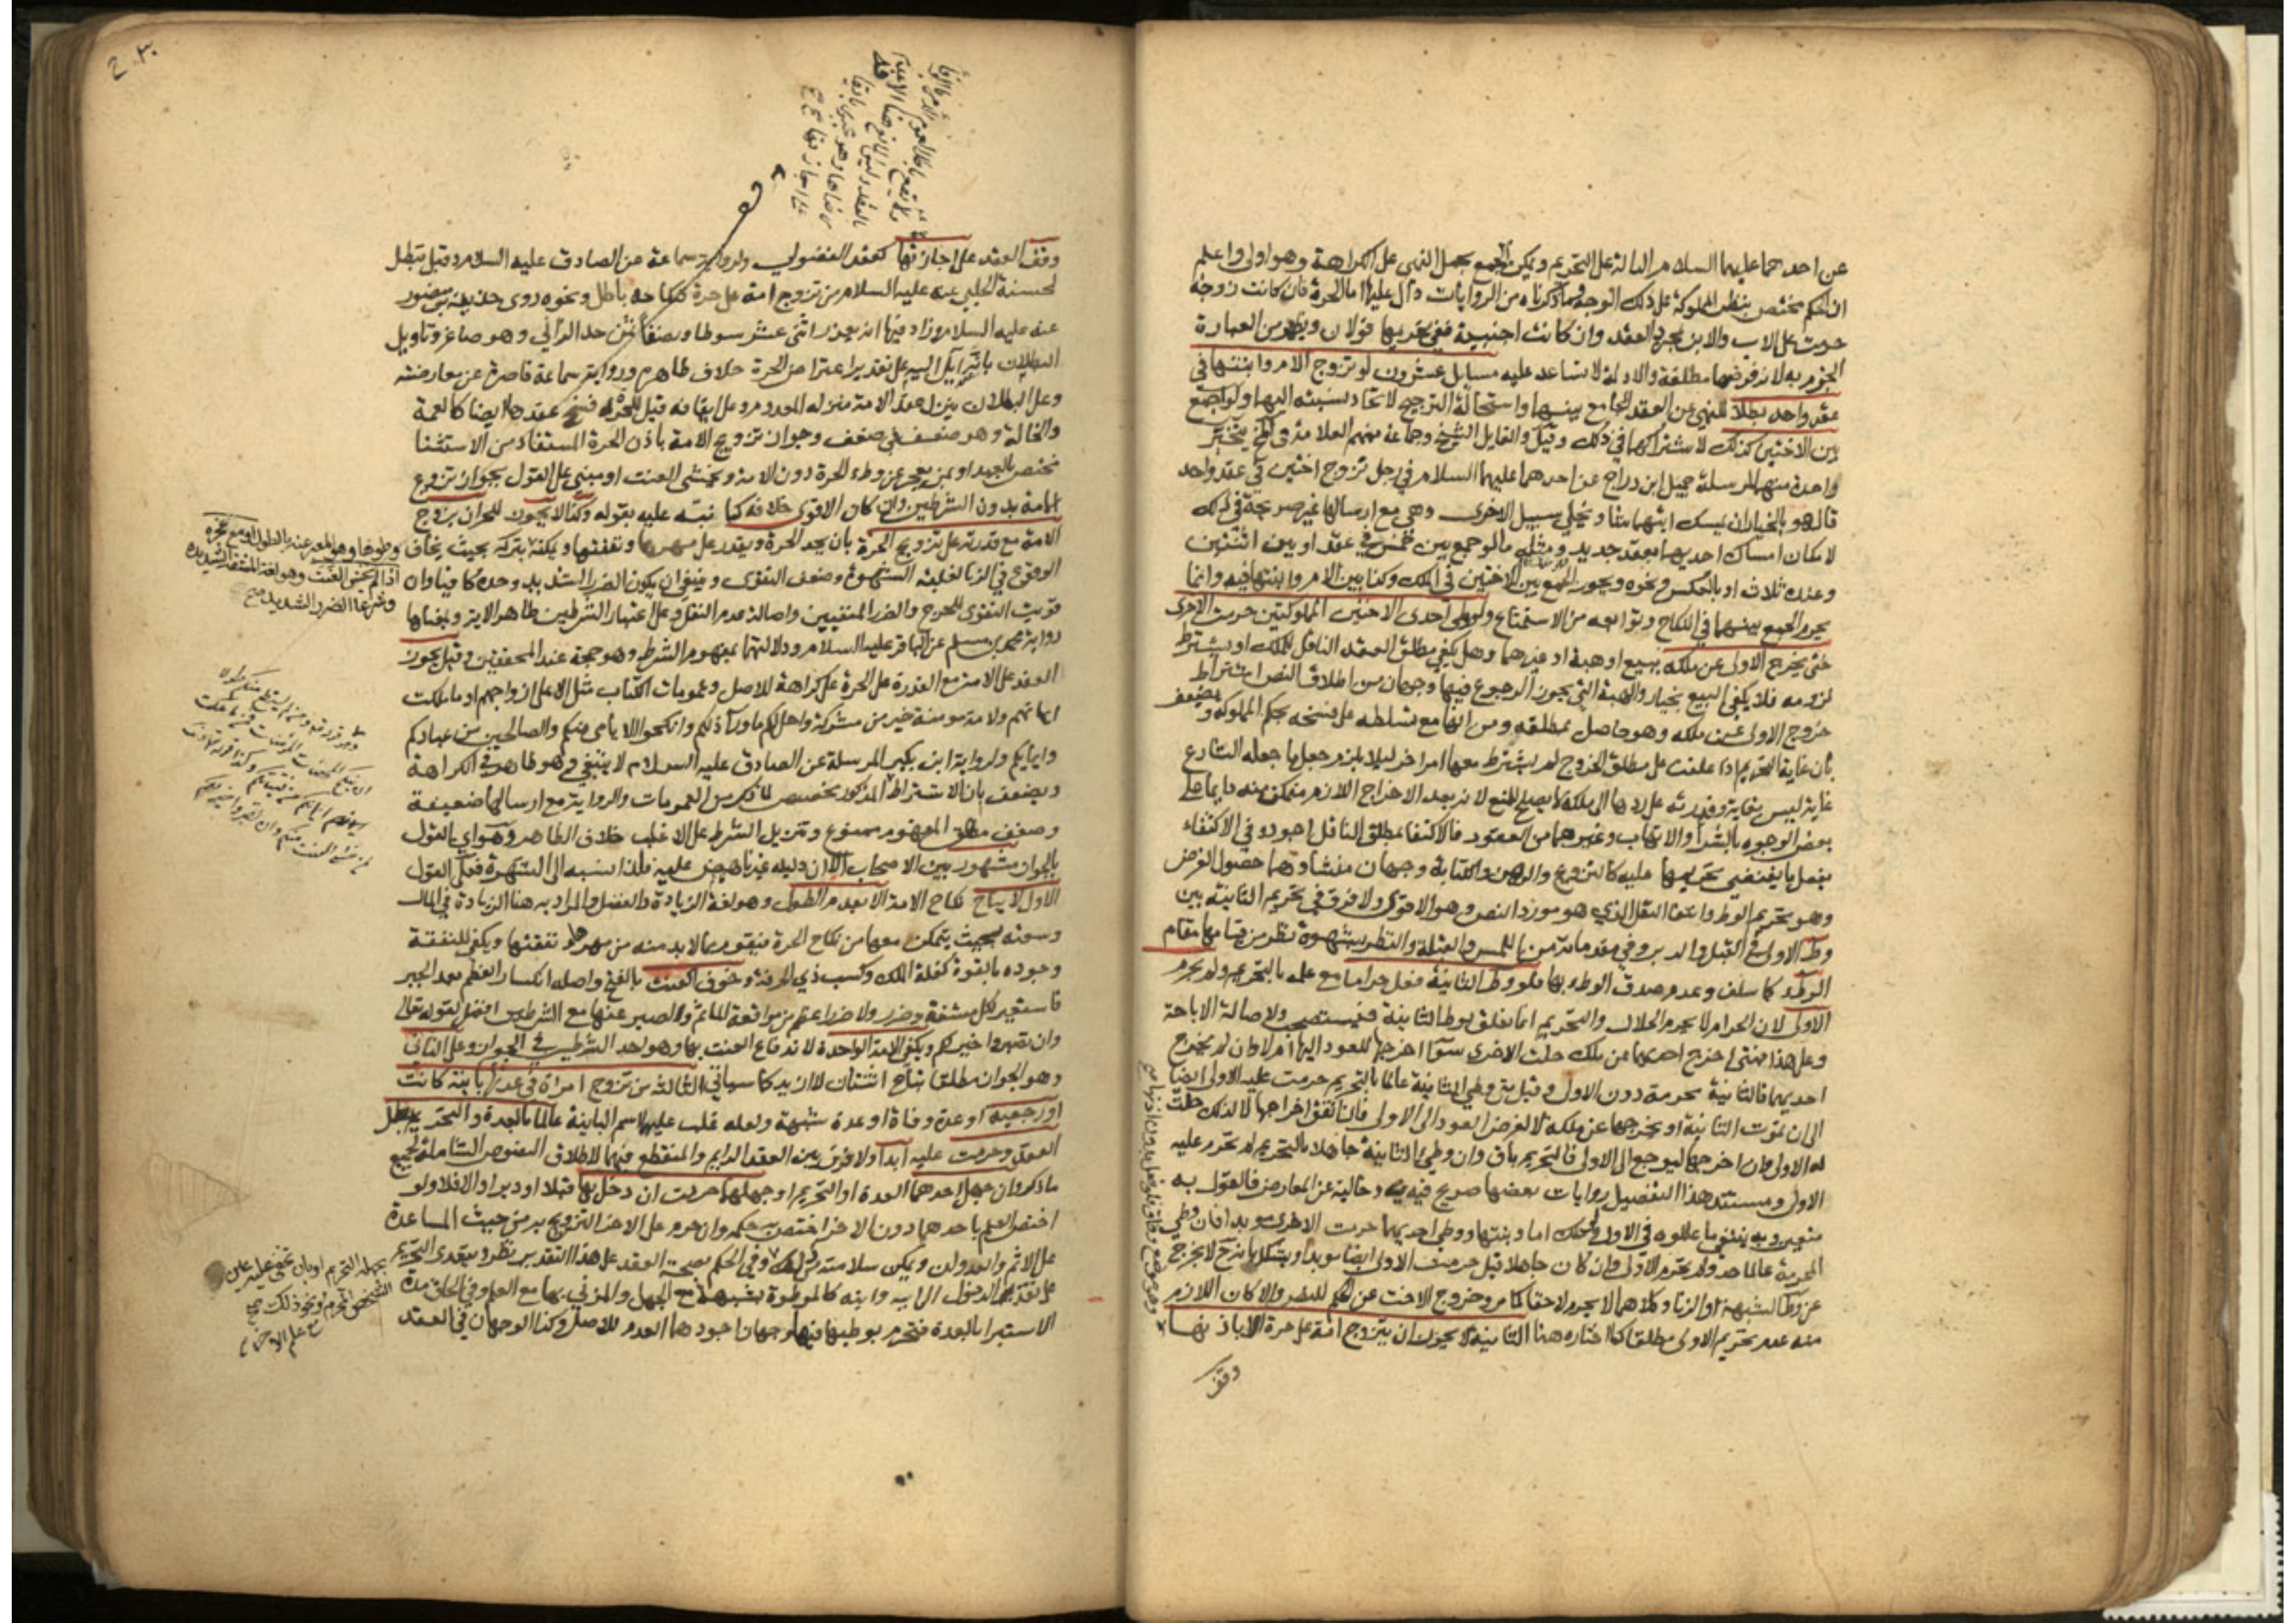 عن احدهما عليهما السلام الدالة على التحريم ويمكن الجمع بحمل النهى على الكراهة وهو اولى واعلم
ان الحكم مختص بنظر المملوكة على ذلك الوجه وما ذكرناه من الروايات دال عليها اما الحرة فان كانت زوجة
حرمت على الاب والابن بمجرد العقد وان كانت اجنبية ففى تحريمها قولان ويظهر من العبارة
الجزم به لانه فرضها مطلقة والادلة لا تساعد عليه مسايل عشرون لو تزوج الام وابنتها فى
عقد واحد بطلا للنهى عن العقد الجامع بينهما واستحالة الترجيح لاتحاد نسبته اليهما ولو جمع
بين الاختين كذلك لاشتراكهما فى ذلك وقيل والقايل الشيخ وجماعة منهم العلامة فى يتخير
واحدة منهما لمرسلة جميل ابن دراج عن احدهما عليهما السلام فى رجل تزوج اختين فى عقد واحد
قال هو بالخيار ان يمسك ايتهما شا ويخلى سبيل الاخرى وهى مع ارسالها غير صريحة فى ذلك
لامكان امساك احديهما بعقد جديد ومثله ما لو جمع بين خمس فى عقد او بين اثنتين
وعنده ثلاث او بالعكس ونحوه ويجوز الجمع بين الاختين فى الملك وكذا بين الام وابنتها فيه وانما
يحرم الجمع بينهما فى النكاح وتوابعه من الاستمتاع ولو وطى احدى الاختين المملوكتين حرمت الاخرى
حتى يخرج الاولى عن ملكه ببيع او هبة او غيرهما وهل يكفى مطلق العقد الناقل للملك او يشترط
لزومه فلا يكفى البيع بخيار والهبة التى يجوز الرجوع فيها وجهان من اطلاق النص اشتراط
خروج الاولى عن ملكه وهو حاصل بمطلقه ومن انها مع تسلطه على فسخه بحكم المملوكة ويضعف
بان غاية التحريم اذا علقت على مطلق الخروج لم يشترط معها امر اخر ليلا يلزم جعل ما جعله الشارع
غاية ليس بغاية وقدرته على ردها الى ملكه لا يصلح للمنع لانه بعد الاخراج اللازم متمكن منه دايما على
بعض الوجوه بالشراء والاتهاب وغيرهما من العقود فالاكتفا بمطلق الناقل اجود وفى الاكتفاء
بفعل ما يقتضى تحريمها عليه كالتزويج والرهن والكتابة وجهان منشاوهما حصول الغرض
وهو تحريم الوطى وانتفا النقل الذى هو مورد النص وهو الاقوى ولا فرق فى تحريم الثانية بين
وطى الاولى فى القبل والدبر وفى مقدماته من اللمس والقبلة والنظر بشهوة نظر من قيامها مقام
الوطى كما سلف وعدم صدق الوطى بها فلو وطى الثانية فعل حراما مع علمه بالتحريم ولم يحرم
الاولى لان الحرام لا يحرم الحلال والتحريم انما تعلق بوطى الثانية فيستصحب ولاصالة الاباحة
وعلى هذا فمتى اخرج احديهما عن ملكه حلت الاخرى سوا اخرجها للعود اليها ام لا وان لم يخرج
احديهما فالثانية محرمة دون الاولى وقيل متى وطى الثانية عالما بالتحريم حرمت عليه الاولى ايضا
الى ان تموت الثانية او يخرجها عن ملكه لا لغرض العود الى الاولى فان اتفق اخراجها لا لذلك حلت
له الاولى وان اخرجها ليرجع الى الاولى فالتحريم باق وان وطى الثانية جاهلا بالتحريم لم تحرم عليه
الاولى ومستند هذا التفصيل روايات بعضها صريح فيه وخالية عن المعارض فالقول به
متعين وبه ينتفى ما عللوه فى الاول ولو ملك اما وبنتها ووطى احديهما حرمت الاخرى موبدا فان وطى
المحرمة عالما حد ولم تحرم الاولى وان كان جاهلا قيل حرمت الاولى ايضا موبدا ويشكل بانه ح لا يخرج
عن وطى الشبهة او الزنا وكلاهما لا يحرم لاحقا كما مر وخروج الاخت عن الحكم للنص والا كان اللازم
منه عدم تحريم الاولى مطلقا كما اختاره هنا الثانية لا يجوز ان يتزوج امة على حرة الا باذنها
وقف
وقف العقد على اجازتها كعقد الفضولى ولرواية سماعة عن الصادق عليه السلام وقيل يبطل
لحسنة الحلبى عنه عليه السلام من تزوج امة على حرة فنكاحه باطل ونحوه روى حذيفة بن منصور
عنه عليه السلام وزاد فيها انه يعزر اثنى عشر سوطا ونصفا ثمن حد الزانى وهو صاغر وتاويل
البطلان بانه آيل اليه على تقدير اعتراض الحرة خلاف ظاهره ورواية سماعة قاصرة عن معارضته
وعلى البطلان ينزل عقد الامة منزلة المعدوم وعلى ايقافه قيل للحرة فسخ عقدها ايضا كالعمة
والخالة وهو ضعيف فى ضعف وجواز تزويج الامة باذن الحرة المستفاد من الاستثنا
مختص بالعبد او بمن يعجز عن وطى الحرة دون الامة ويخشى العنت او مبنى على القول بجواز تزويج
الامة بدون الشرطين والا كان الاقوى خلافه كما نبه عليه بقوله وكذا لا يجوز للحر ان يتزوج
الامة مع قدرته على تزويج الحرة بان يجد الحرة ويقدر على مهرها ونفقتها ويمكنه بتركه بحيث يخاف
الوقوع فى الزنا لغلبة الشهوة وضعف التقوى وينبغى ان يكون الضرر الشديد وحده كافيا وان
قويت التقوى للحرج والضرر المنفيين واصالة عدم النقل وعلى اعتبار الشرطين ظاهر الاية وبمعناها
رواية محمد بن مسلم عن الباقر عليه السلام ودلالتهما بمفهوم الشرط وهو حجة عند المحققين وقيل يجوز
العقد على الامة مع القدرة على الحرة على كراهة للاصل وعمومات الكتاب مثل الا على ازواجهم او ما ملكت
ايمانهم ولامة مومنة خير من مشركة واحل لكم ما ورآ ذلكم وانكحوا الايامى منكم والصالحين من عبادكم
وامايكم ولرواية ابن بكير المرسلة عن الصادق عليه السلام لا ينبغى وهو ظاهر فى الكراهة
ويضعف بان الاشتراط المذكور مخصص لما ذكر من العمومات والرواية مع ارسالها ضعيفة
وضعف مطلق المفهوم ممنوع وتنزيل الشرط على الاغلب خلاف الظاهر وهو اى القول
بالجواز مشهور بين الاصحاب الا ان دليله غير ناهض عليه فلذا نسبه الى الشهرة فعلى القول
الاول لا يباح نكاح الامة الا بعدم الطول وهو لغة الزيادة والفضل والمراد به هنا الزيادة فى المال
وسعته بحيث يتمكن معها من نكاح الحرة فيقوم بما لا بد منه من مهرها ونفقتها ويكفى للنفقة
وجوده بالقوة كغلة الملك وكسب ذى الحرفة وخوف العنت بالفتح واصله انكسار العظم بعد الجبر
فاستعير لكل مشقة وضرر ولا ضرر اعظم من مواقعة الماثم والصبر عنها مع الشرطين افضل لقوله تعالى
وان تصبروا خير لكم ويكفى الامة الواحدة لاندفاع العنت بها وهو احد الشرطين فى الجواز وعلى الثانى
وهو الجواز مطلقا يباح اثنتان لا ازيد كما سياتى الثالثة من تزوج امراة فى عدتها باينة كانت
او رجعية او عدة وفاة او عدة شبهة ولعله غلب عليها اسم الباينة عالما بالعدة والتحريم بطل
العقد وحرمت عليه ابدا ولا فرق بين العقد الدايم والمنقطع فيهما لاطلاق النصوص الشاملة لجميع
ما ذكر وان جهل احدهما العدة او التحريم او جهلهما حرمت ان دخل بها قبلا او دبرا والا فلا ولو
اختص العلم باحدهما دون الاخر اختص به حكمه وان حرم على الاخر التزويج به من حيث المساعدة
على الاثم والعدوان ويمكن سلامته من ذلك وفى الحكم بصحة العقد على هذا التقدير نظر ويتعدى التحريم
على تقدير الدخول الى ابيه وابنه كالموطوة بشبهة مع الجهل والمزنى بها مع العلم وفى الحاق مدة
الاستبرا بالعدة فتحرم بوطيها فيها وجهان اجودهما العدم للاصل وكذا الوجهان فى العقد
اذا لم يخش العنت وهو لغة المشقة الشديدة
وشرعا الضرر الشديد صح